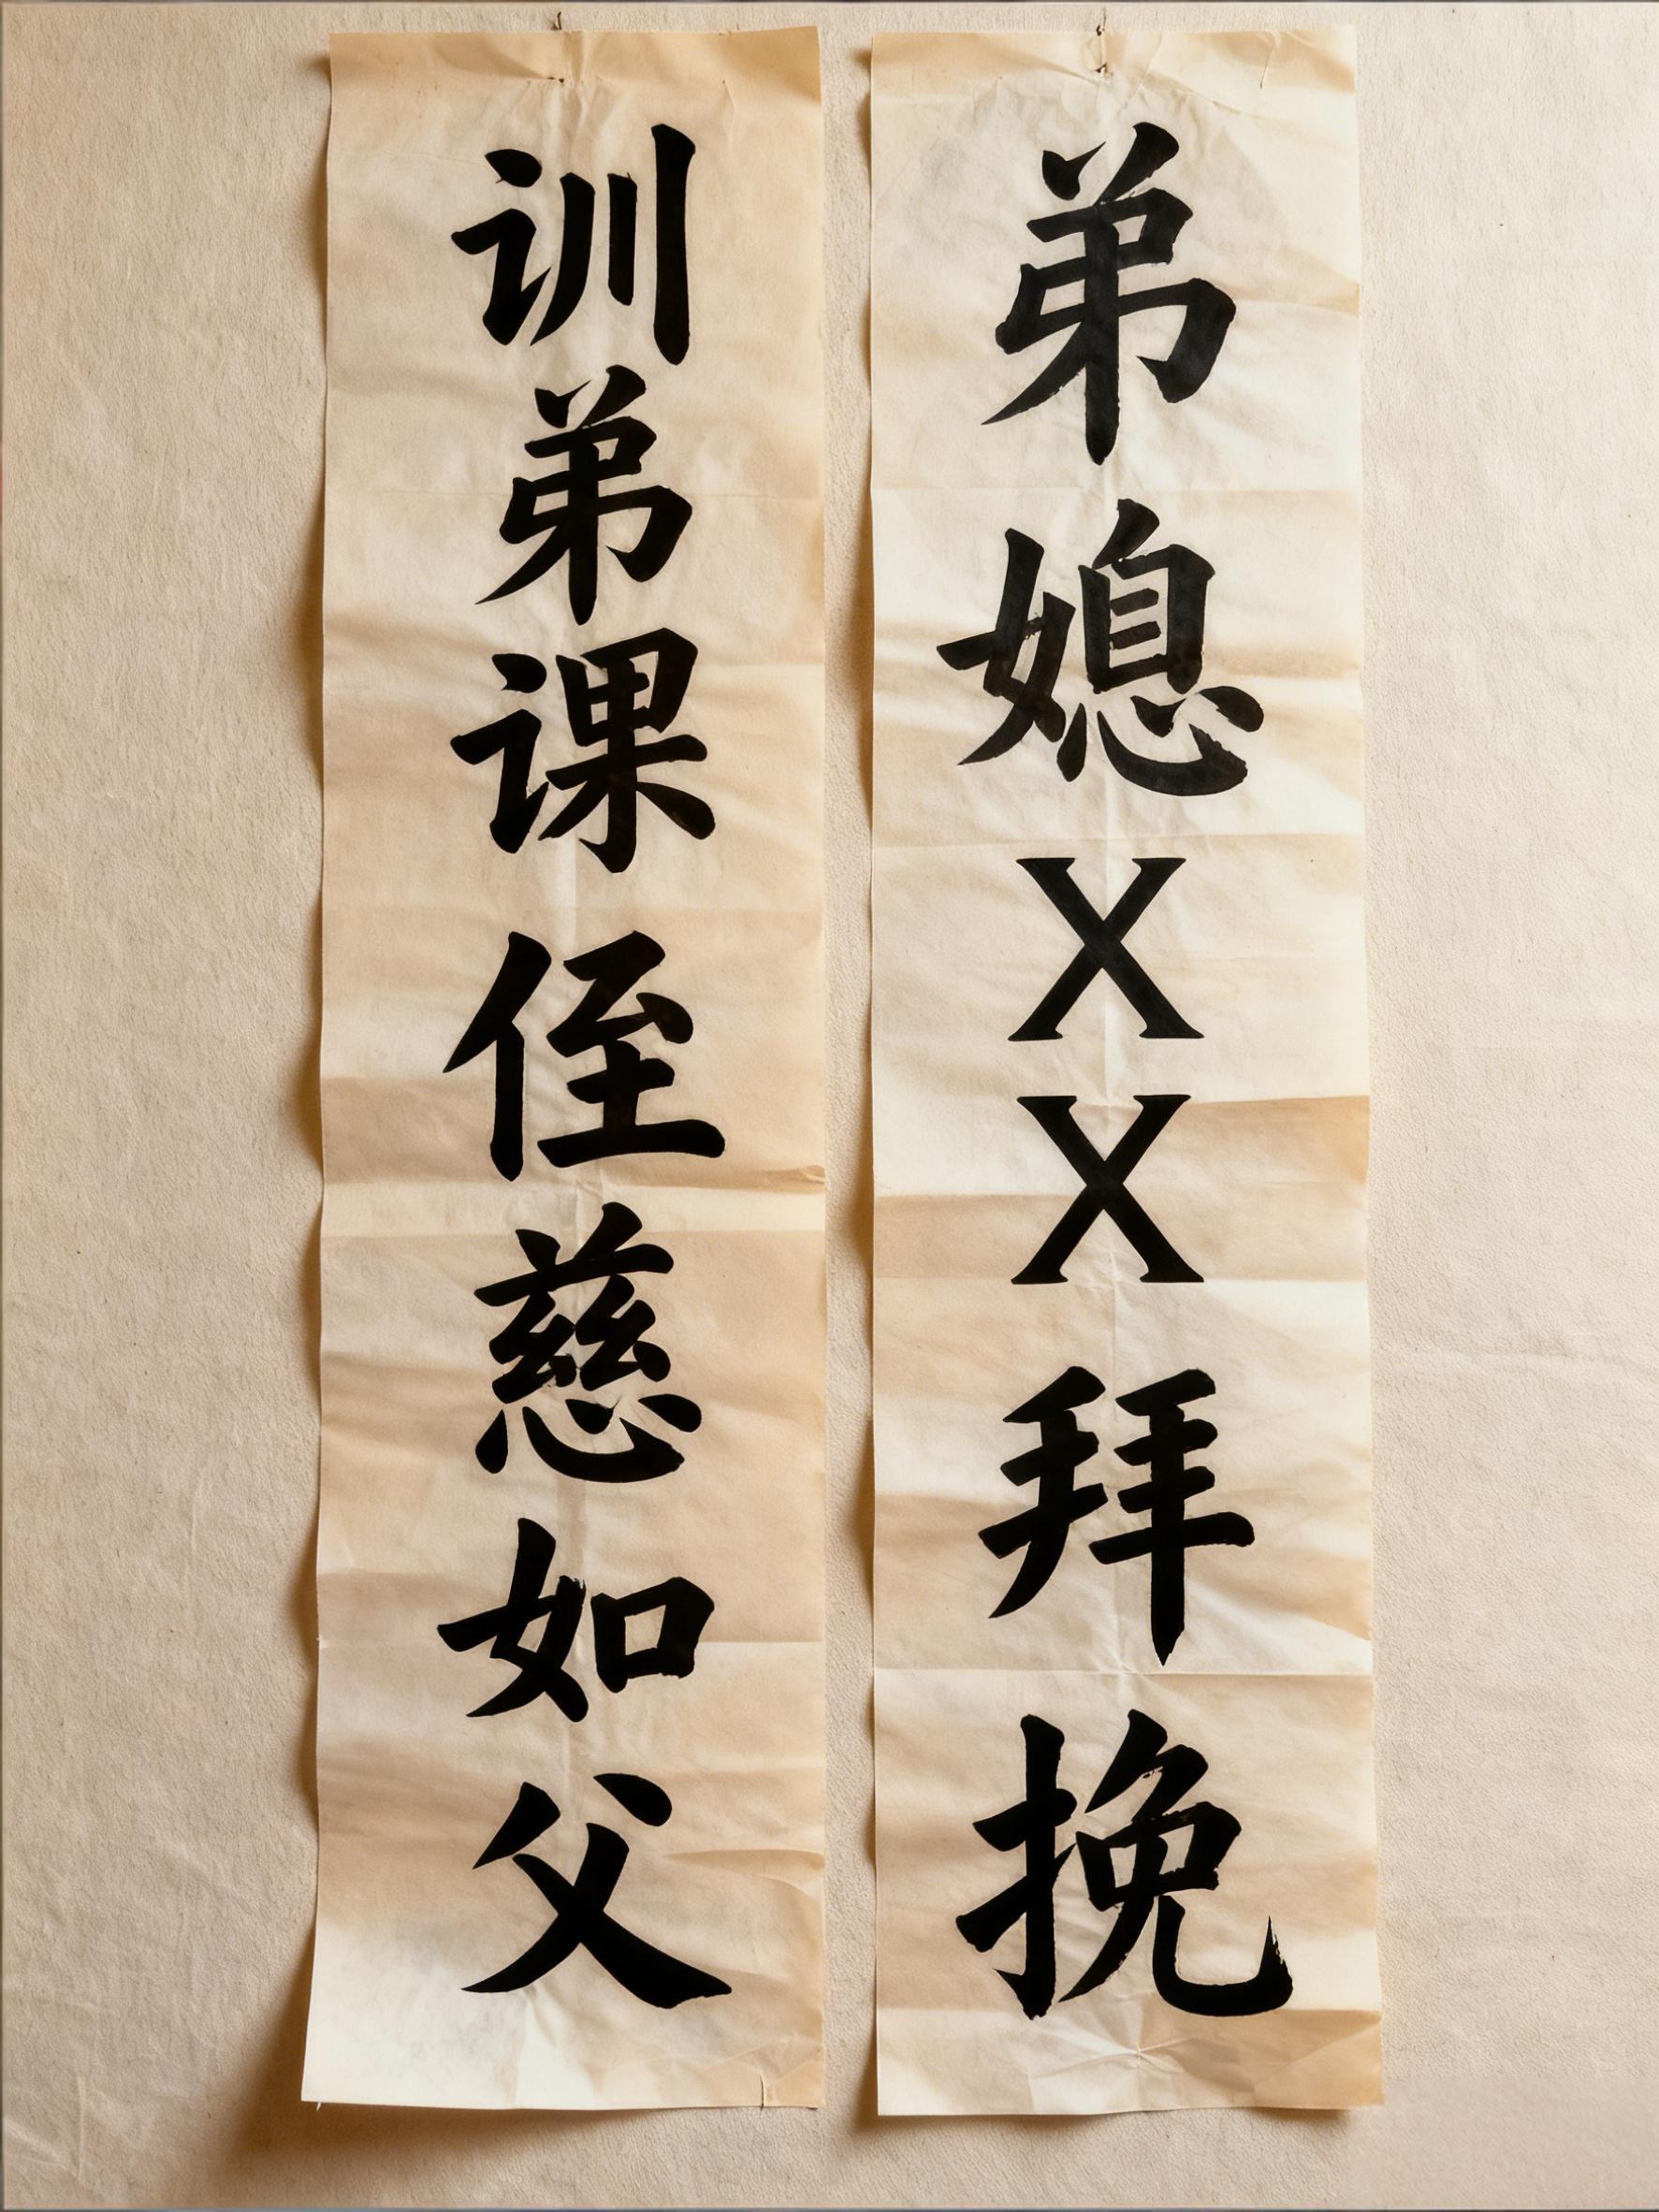 弟媳XX拜挽
训弟课侄慈如父